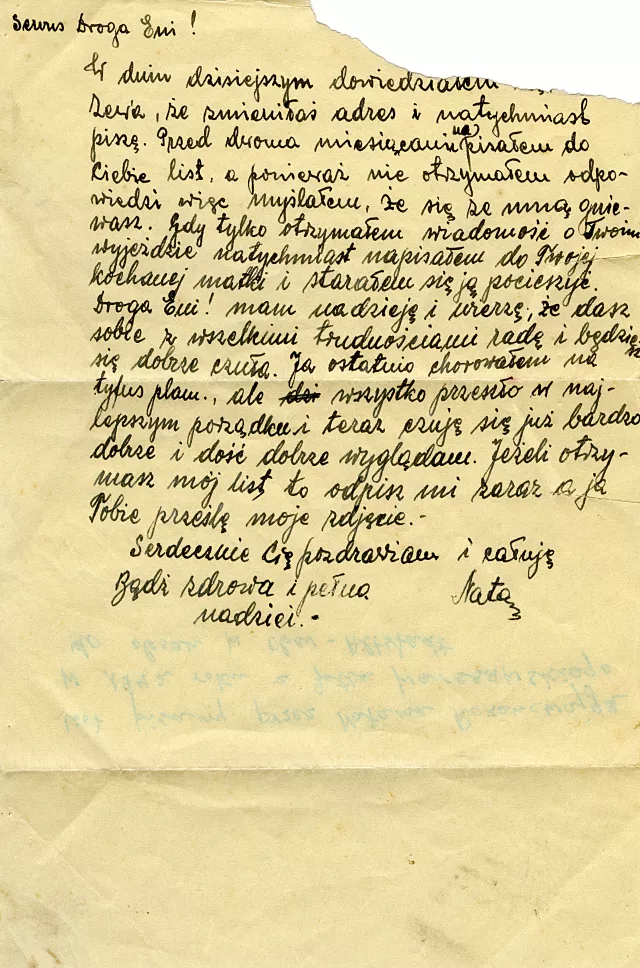 Serwus Droga Eni!
W dniu dzisiejszym dowiedziałem
Zewa, że zmieniłaś adres i natychmiast
piszę. Przed dwoma miesiącami na pisałem do
Ciebie list, a ponieważ nie otrzymałem odpo-
wiedzi więc myślałem, że się ze mną gnie-
wasz. Gdy tylko otrzymałem wiadomość o Twoim
wyjeździe natychmiast napisałem do Twojej
kochanej matki i starałem się ją pocieszyć.
Droga Eni! mam nadzieję i wierzę, że dasz
sobie z wszelkimi trudnościami radę i będziesz
się dobrze czuła. Ja ostatnio chorowałem na
tyfus plam., ale dzi wszystko przeszło w naj-
lepszym porządku i teraz czuję się już bardzo
dobrze i dość dobrze wyglądam. Jeżeli otrzy-
masz mój list to odpisz mi zaraz a ja
Tobie prześlę moje zdjęcie.-
Serdecznie Cię pozdrawiam i całuję
Bądź zdrowa i pełna Natan
nadziei.-
do obozu w
w 1942 roku z getta warszawskiego
list pisany przez Natana